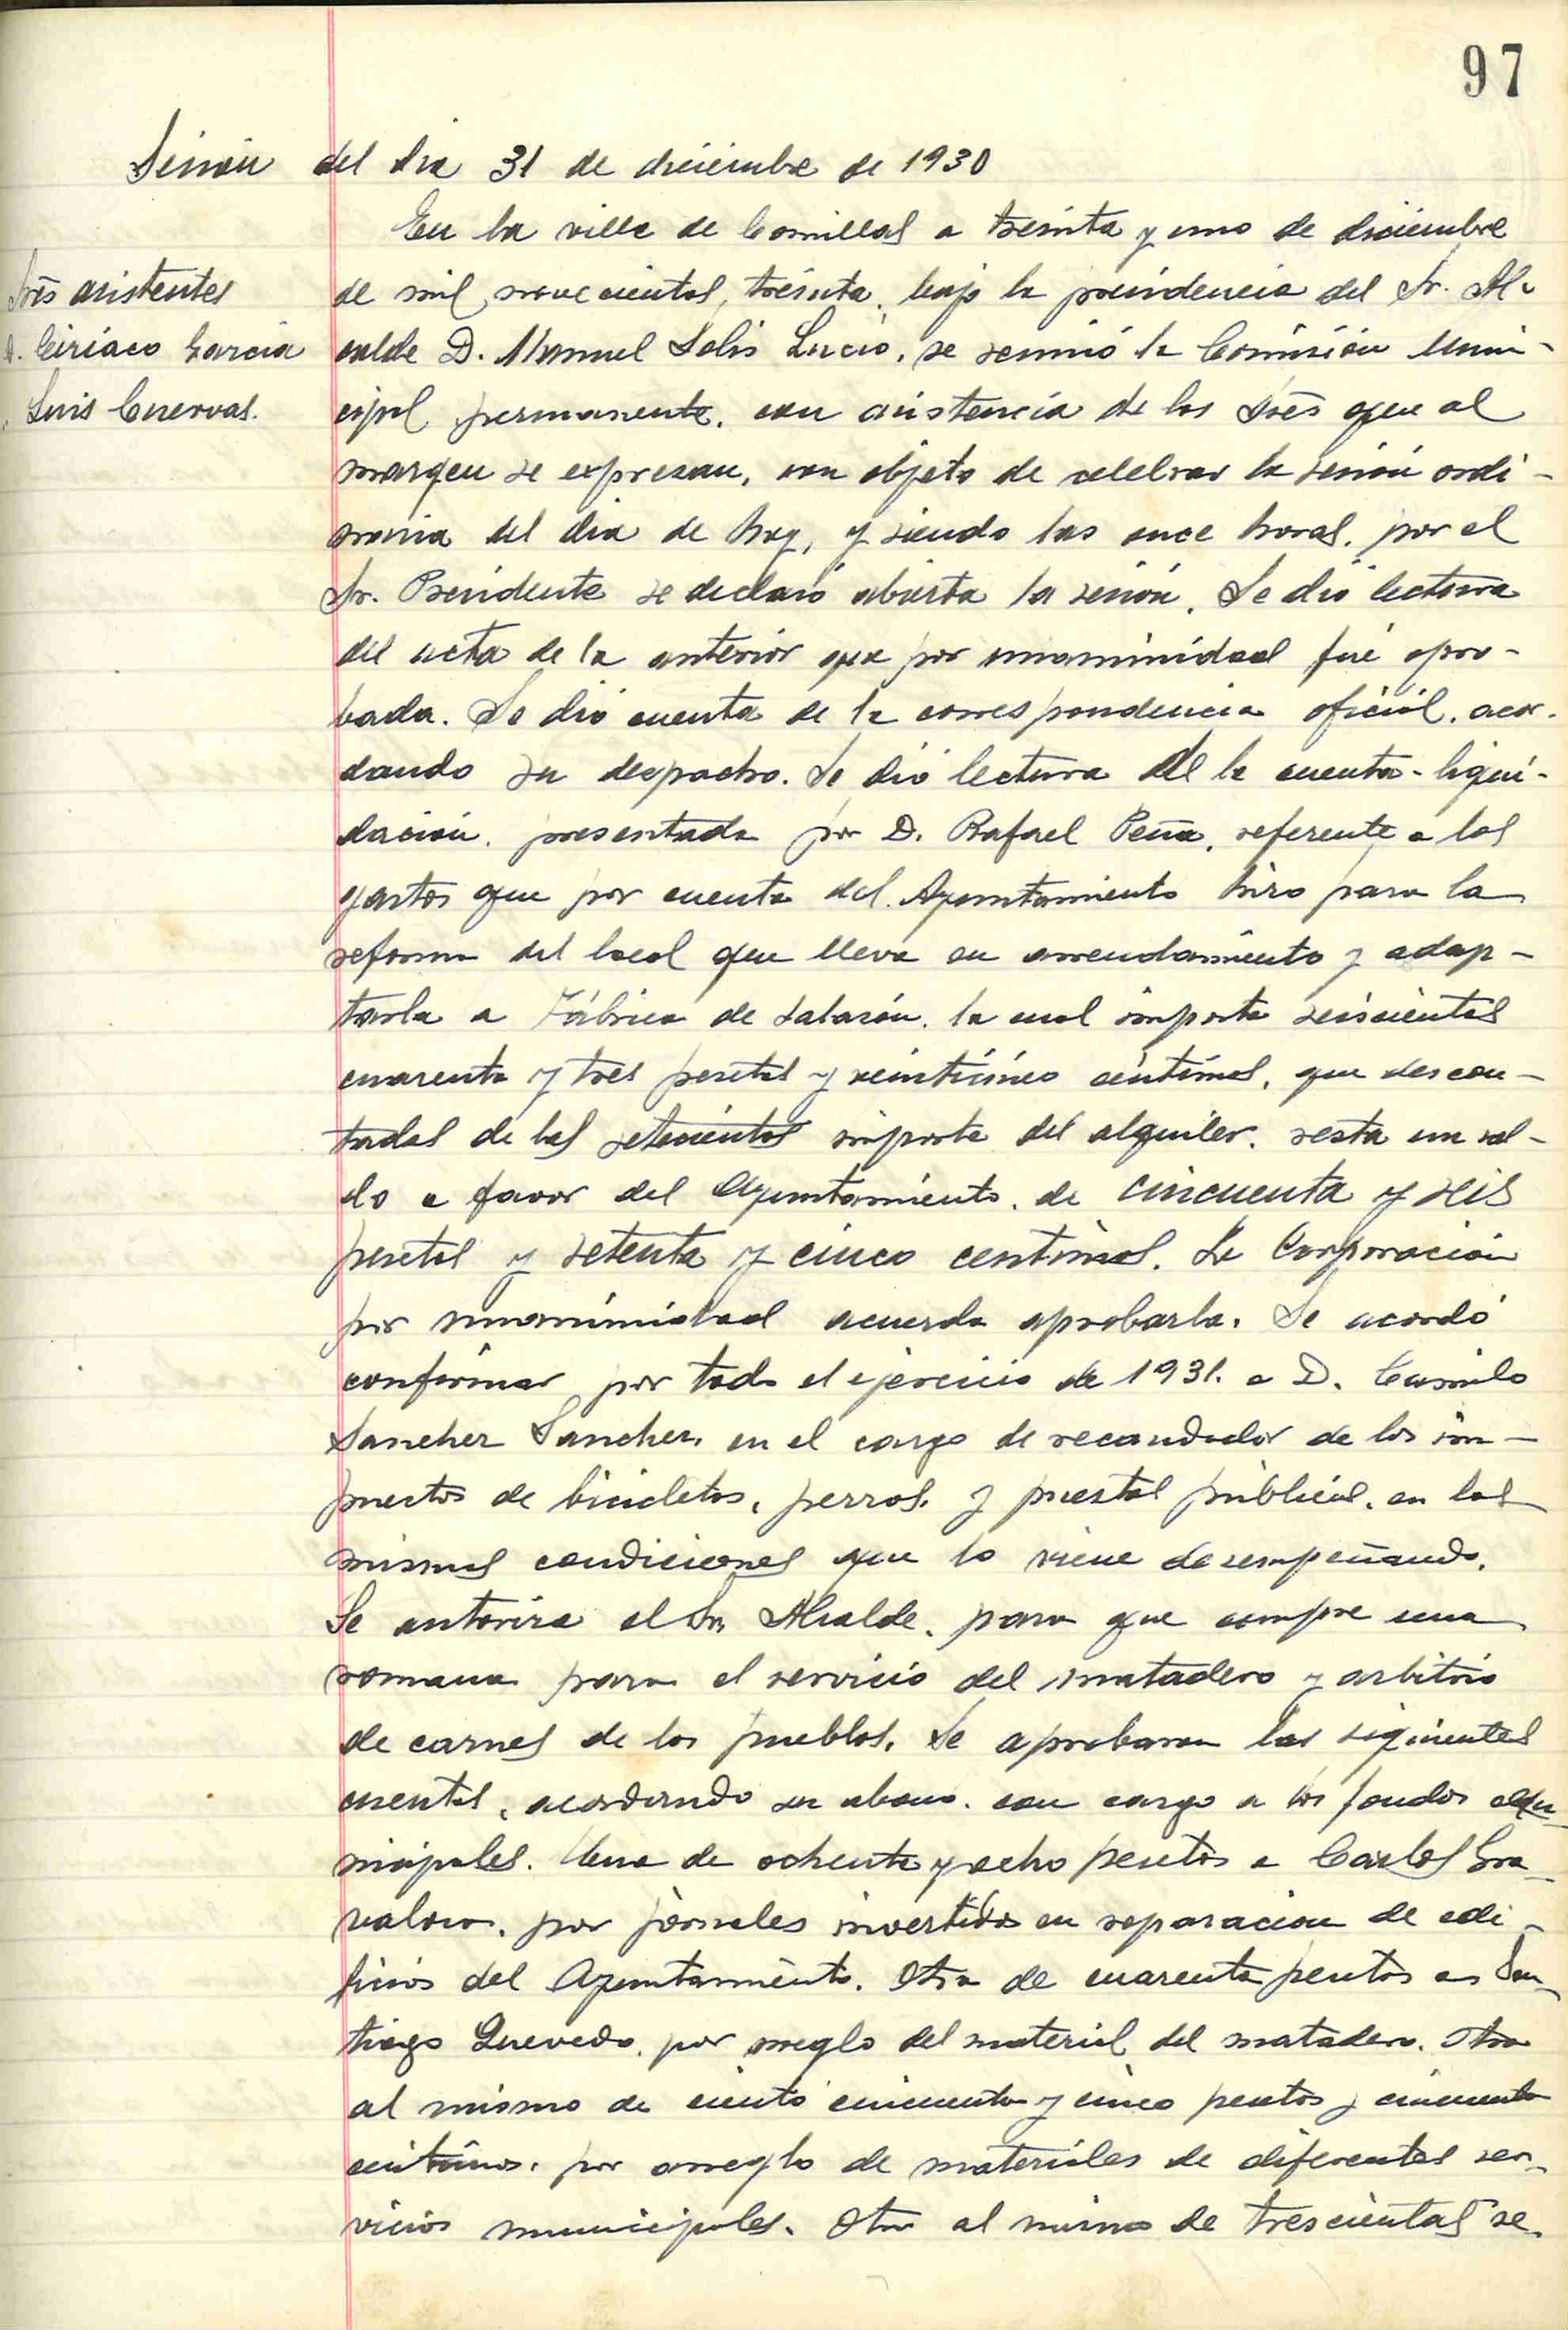 97
Sesión del dia 31 de diciembre de 1930
En la villa de Comillas a treinta y uno de diciembre
Srēs asistentes
D. Ciriaco Garcia
" Luis Cuervas.
de mil novecientos treinta, bajo la presidencia del Sr. Al-
calde D. Manuel Solis Lucio, se reunió la Comisión Muni-
cipal permanente, con asistencia de los Srēs que al
margen se expresan, con objeto de celebrar la sesión ordi-
naria del dia de hoy, y siendo las once horas, por el
Sr. Presidente se declaró abierta la sesión. Se dió lectura
del acta de la anterior que por unanimidad fué apro-
bada. Se dió cuenta de la correspondencia oficial, acor-
dando su despacho. Se dió lectura de la cuenta-liqui-
dación, presentada por D. Rafael Peña, referente a los
gastos que por cuenta del Ayuntamiento hizo para la
reforma del local que lleva en arrendamiento y adap-
tarla a Fábrica de salazón, la cual importa seiscientas
cuarenta y tres pesetas y veinticinco céntimos, que descon-
tadas de las setecientas importe del alquiler, resta un sal-
do a favor del Ayuntamiento, de cincuenta y seis
pesetas y setenta y cinco centimos. La Corporación
por unanimidad acuerda aprobarla. Se acordó
confirmar por todo el ejercicio de 1931. a D. Camilo
Sanchez Sanchez, en el cargo de recaudador de los im-
puestos de bicicletas, perros, y puestos públicos, en las
mismas condiciones que lo viene desempeñando.
Se autoriza al Sr. Alcalde, para que compre una
romana para el servicio del matadero y arbitrio
de carnes de los pueblos. Se aprobaron las siguientes
cuentas, acordando su abono, con cargo a los fondos mu-
nicipales. Una de ochenta y ocho pesetas a Carlos Gra-
valosa, por jornales invertidos en reparación de edi-
ficios del Ayuntamiento. Otra de cuarenta pesetas a San-
tiago Quevedo, por arreglo del material del matadero. Otra
al mismo de ciento cincuenta y cinco pesetas y cincuenta
céntimos, por arreglo de materiales de diferentes ser-
vicios municipales. Otra al mismo de trescientas se-